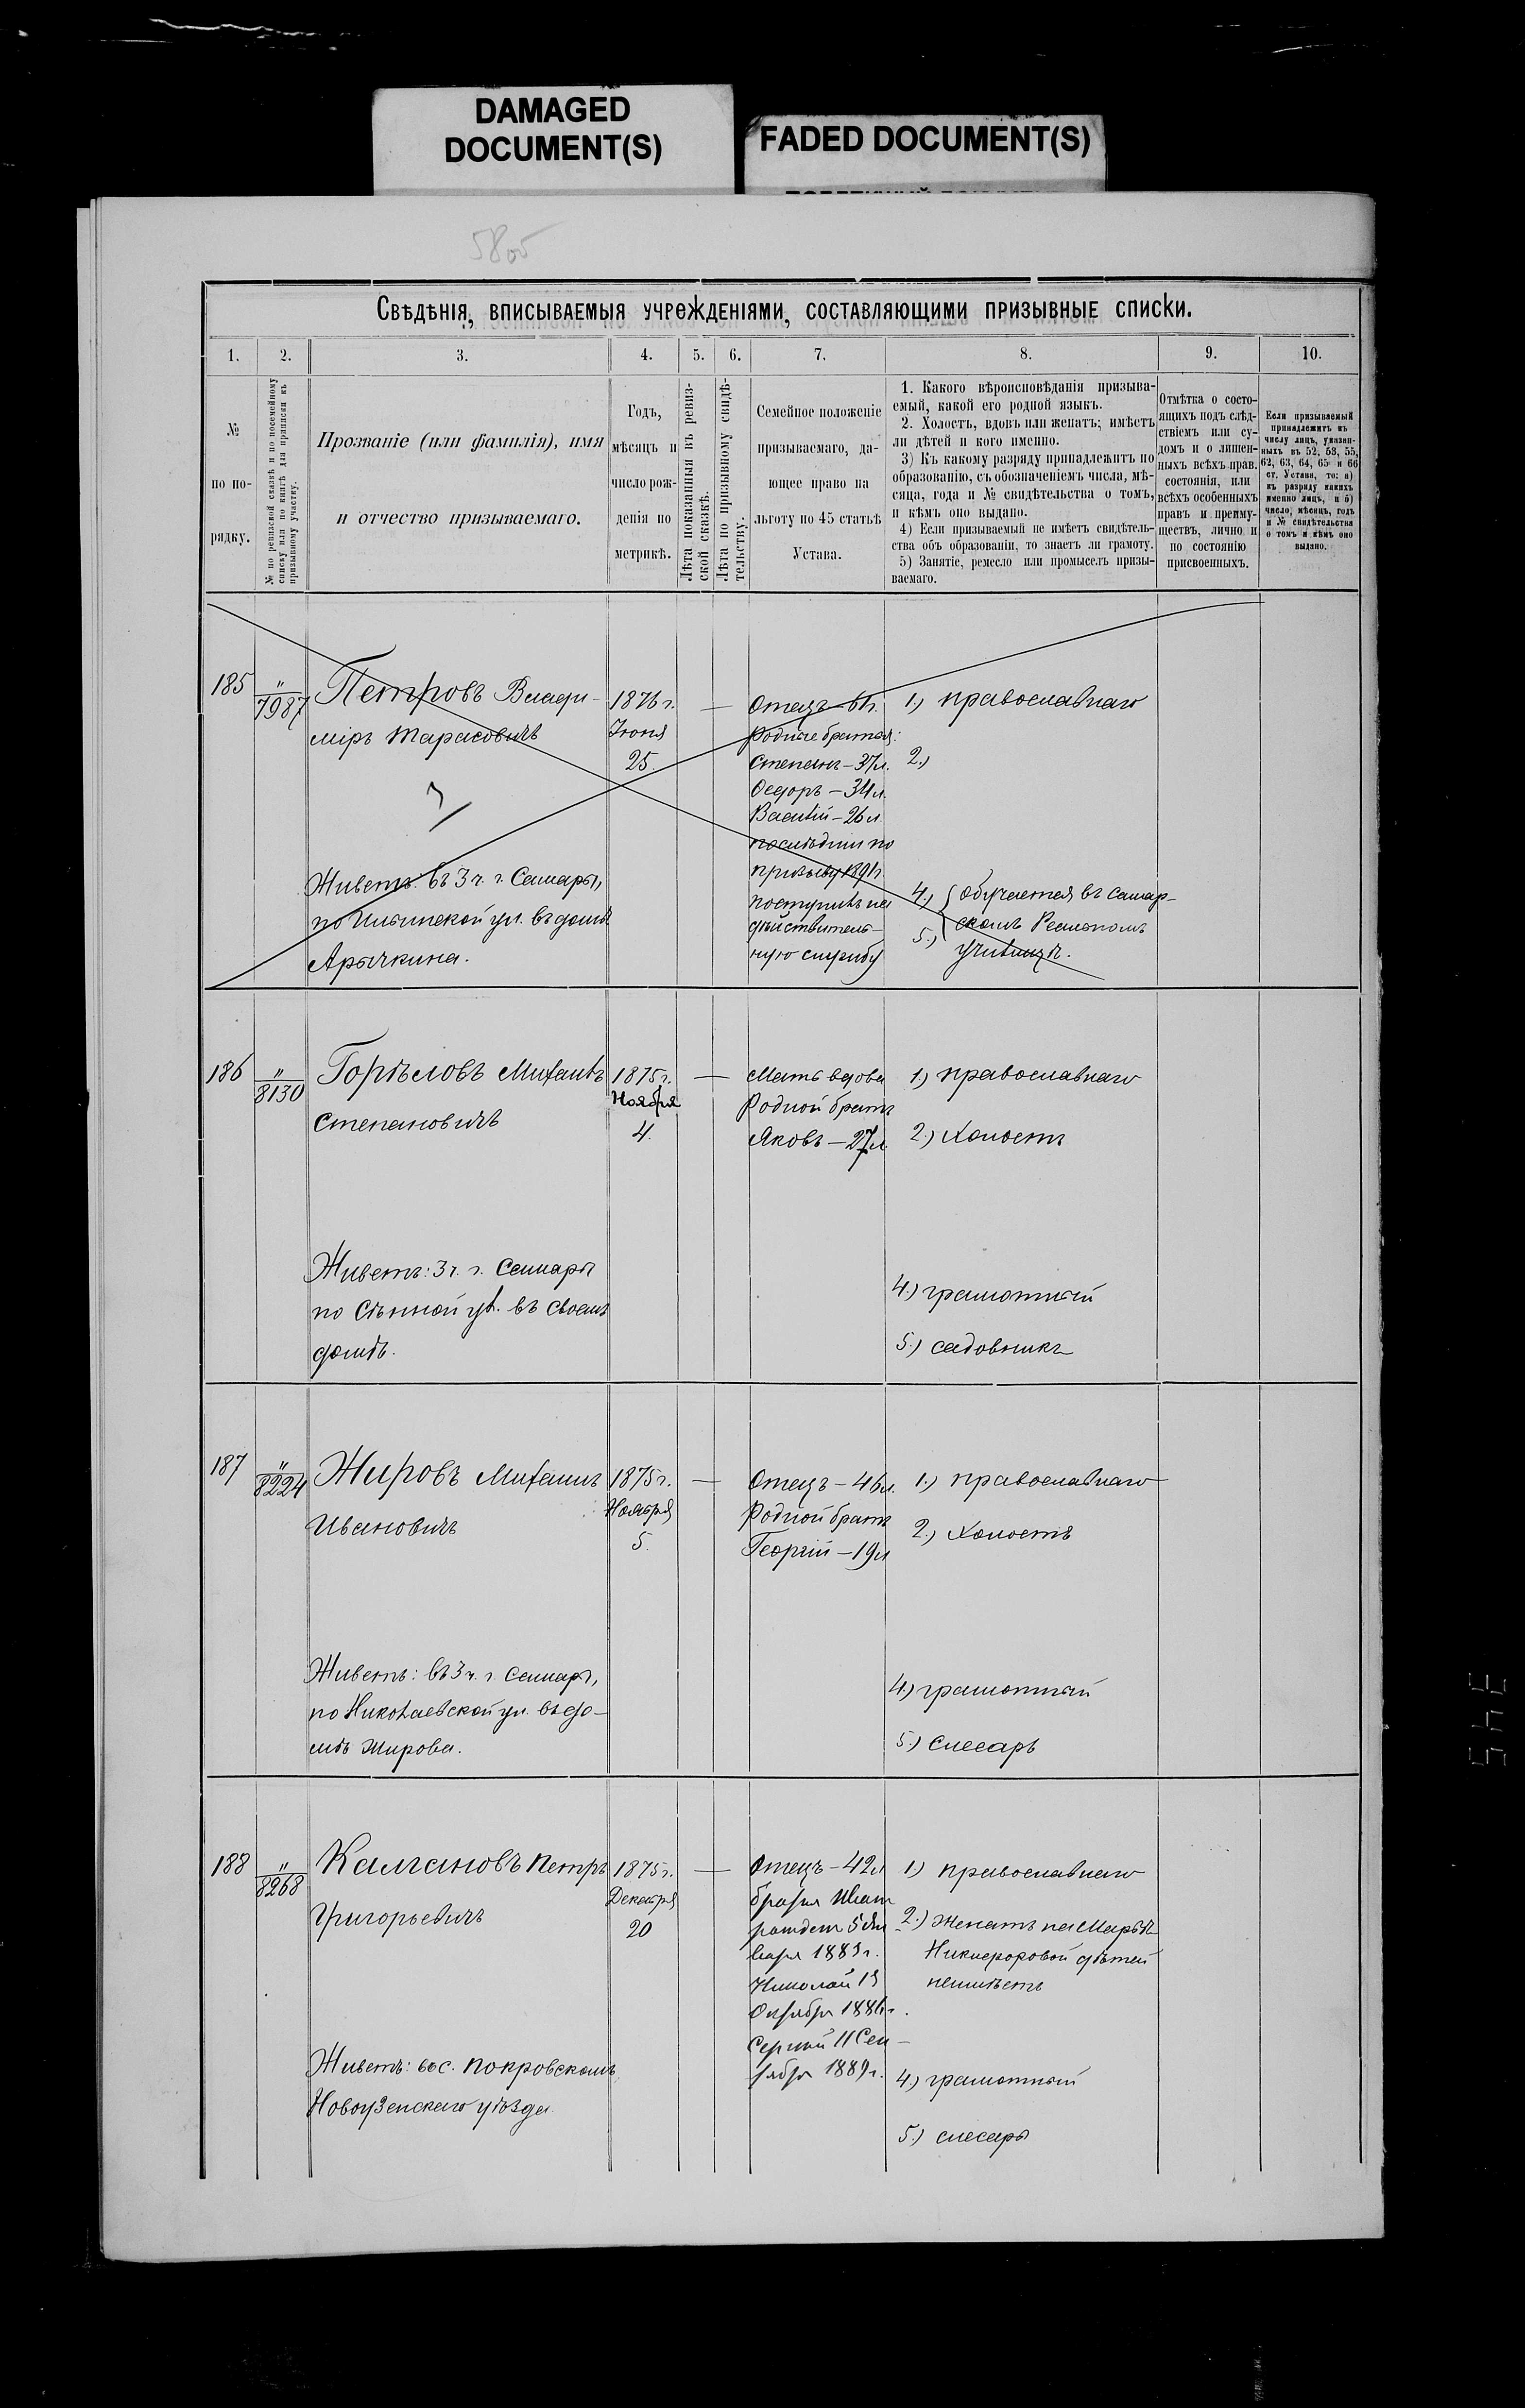 DAMAGED
DOCUMENT(S)
FADED DOCUMENT(S)
Свѣдѣнія, вписываемыя учрежденіями, составляющими призывные списки.
1. 2. 3. 4. 5. 6. 7. 8. 9. 10.
№
по по-
рядку.
№ по ревизской сказкѣ и по посемейному
списку или по книгѣ для приписки къ
призывному участку.
Прозваніе (или фамилія), имя
и отчество призываемаго.
Годъ,
мѣсяцъ и
число рож-
денія по
метрикѣ.
Лѣта показанныя въ ревиз-
ской сказкѣ.
Лѣта по призывному свидѣ-
тельству.
Семейное положеніе
призываемаго, да-
ющее право на
льготу по 45 статьѣ
Устава.
1. Какого вѣроисповѣданія призыва-
емый, какой его родной языкъ.
2. Холостъ, вдовъ или женатъ; имѣетъ
ли дѣтей и кого именно.
3) Къ какому разряду принадлежитъ по
образованію, съ обозначеніемъ числа, мѣ-
сяца, года и № свидѣтельства о томъ,
и кѣмъ оно выдано.
4) Если призываемый не имѣетъ свидѣтель-
ства объ образованіи, то знаетъ ли грамоту.
5) Занятіе, ремесло или промыселъ призы-
ваемаго.
Отмѣтка о состо-
ящихъ подъ слѣд-
ствіемъ или су-
домъ и о лишен-
ныхъ всѣхъ прав.
состоянія, или
всѣхъ особенныхъ
правъ и преиму-
ществъ, лично и
по состоянію
присвоенныхъ.
Если призываемый
принадлежитъ къ
числу лицъ, указан-
ныхъ въ 52, 53, 55,
62, 63, 64, 65 и 66
ст. Устава, то: а)
къ разряду какихъ
именно лицъ, и б)
число, мѣсяцъ, годъ
и № свидѣтельства
о томъ и кѣмъ оно
выдано.
185
"
7987
Петровъ Влади-
міръ Тарасовичъ
Живетъ въ 3 ч. г. Самары,
по Ильинской ул. въ домѣ
Арычкина.
1876 г.
Іюня
25.
—
Отецъ - 61 г.
Родные братья:
Степанъ - 37 л.
Ѳедоръ - 34 л.
Василій - 26 л.
послѣдній по
призыву 1891 г.
поступилъ на
дѣйствитель-
ную службу
1.) православнаго
2.)
4.) { Обучается въ Самар-
5.) скомъ Реальномъ
училищѣ.
186
"
8130
Горѣловъ Михаилъ
Степановичъ
Живетъ: 3 ч. г. Самары
по Сѣнной ул. въ своемъ
домѣ.
1875 г.
Ноября
4.
—
Мать вдова
Родной братъ
Яковъ - 27 л
1.) православнаго
2.) Холостъ
4.) грамотный
5.) садовникъ
187
"
8224
Жировъ Михаилъ
Ивановичъ
Живетъ: въ 3 ч. г. Самары,
по Николаевской ул. въ до-
мѣ Жирова.
1875 г.
Ноября
5.
—
Отецъ - 46 л.
Родной братъ
Георгій - 19 л
1.) православнаго
2.) Холостъ
4.) грамотный
5.) Слесарь
188
"
8268
Калгановъ Петръ
Григорьевичъ
Живетъ: въ с. Покровскомъ
Новоузенскаго уѣзда
1875 г.
Декабря
20
—
Отецъ - 42 л
братья Иванъ
рожден 5 Ян
варя 1883 г.
Николай 13
Октября 1886 г.
Сергѣй 11 Сен-
тября 1889 г.
1.) православнаго
2.) Женатъ на Марьѣ
Никифоровой дѣтей
неимѣетъ
4.) грамотный
5.) слесарь
345